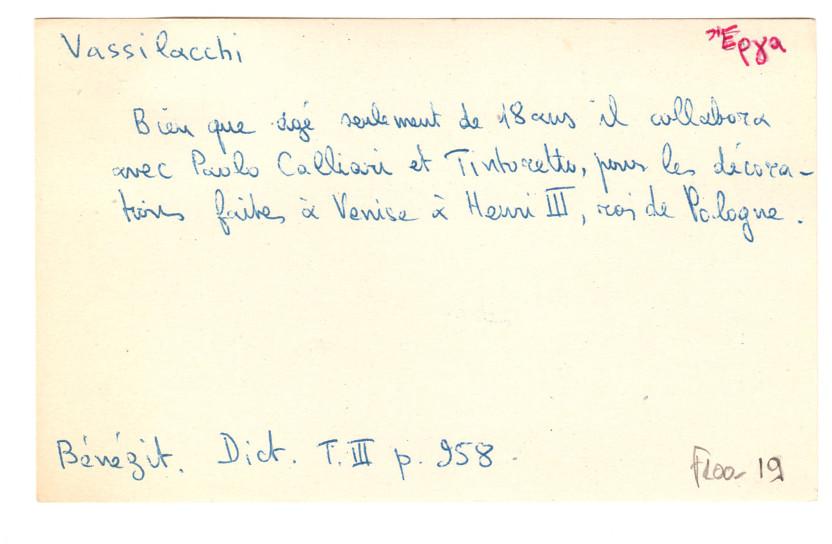 Vassilacchi
Έργα
Bien que âgé seulement de 18 ans il collabora
avec Paolo Calliari et Tintoretto, pour les décora-
tions faites à Venise à Henri III, roi de Pologne.
Bénézit. Dict. T. III p. 958.
19